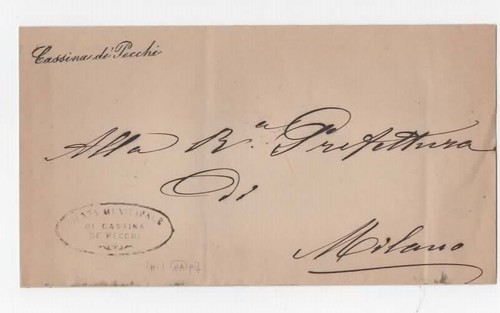 Cassina de' Pecchi
Alla R.a Prefettura
Di
Milano
GIUNTA MUNICIPALE
DI CASSINA
DE' PECCHI